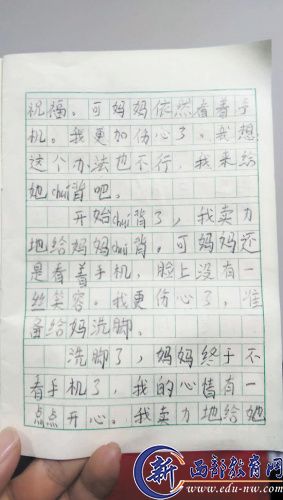 祝福。可妈妈依然看着手
机。我更加伤心了。我想:
这个办法也不行,我来给
她chuí背吧。
开始chuí背了,我卖力
地给妈妈chuí背。可妈妈还
是看着手机,脸上没有一
丝笑容。我更伤心了,准
备给妈洗脚。
洗脚了,妈妈终于不
看手机了,我的心情有一
点点开心。我卖力地给她
新 西部教育网
www.edu-nw.com